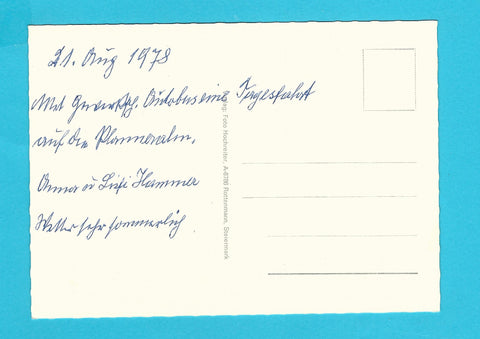 21. Aug 1978
Mit Gewerksch. Autobus eine Tagesfahrt
auf die Planneralm.
Anna u Lisi Hammer
Wetter sehr sommerlich
Verlag: Foto Hochreiter, A-8786 Rottenmann, Steiermark